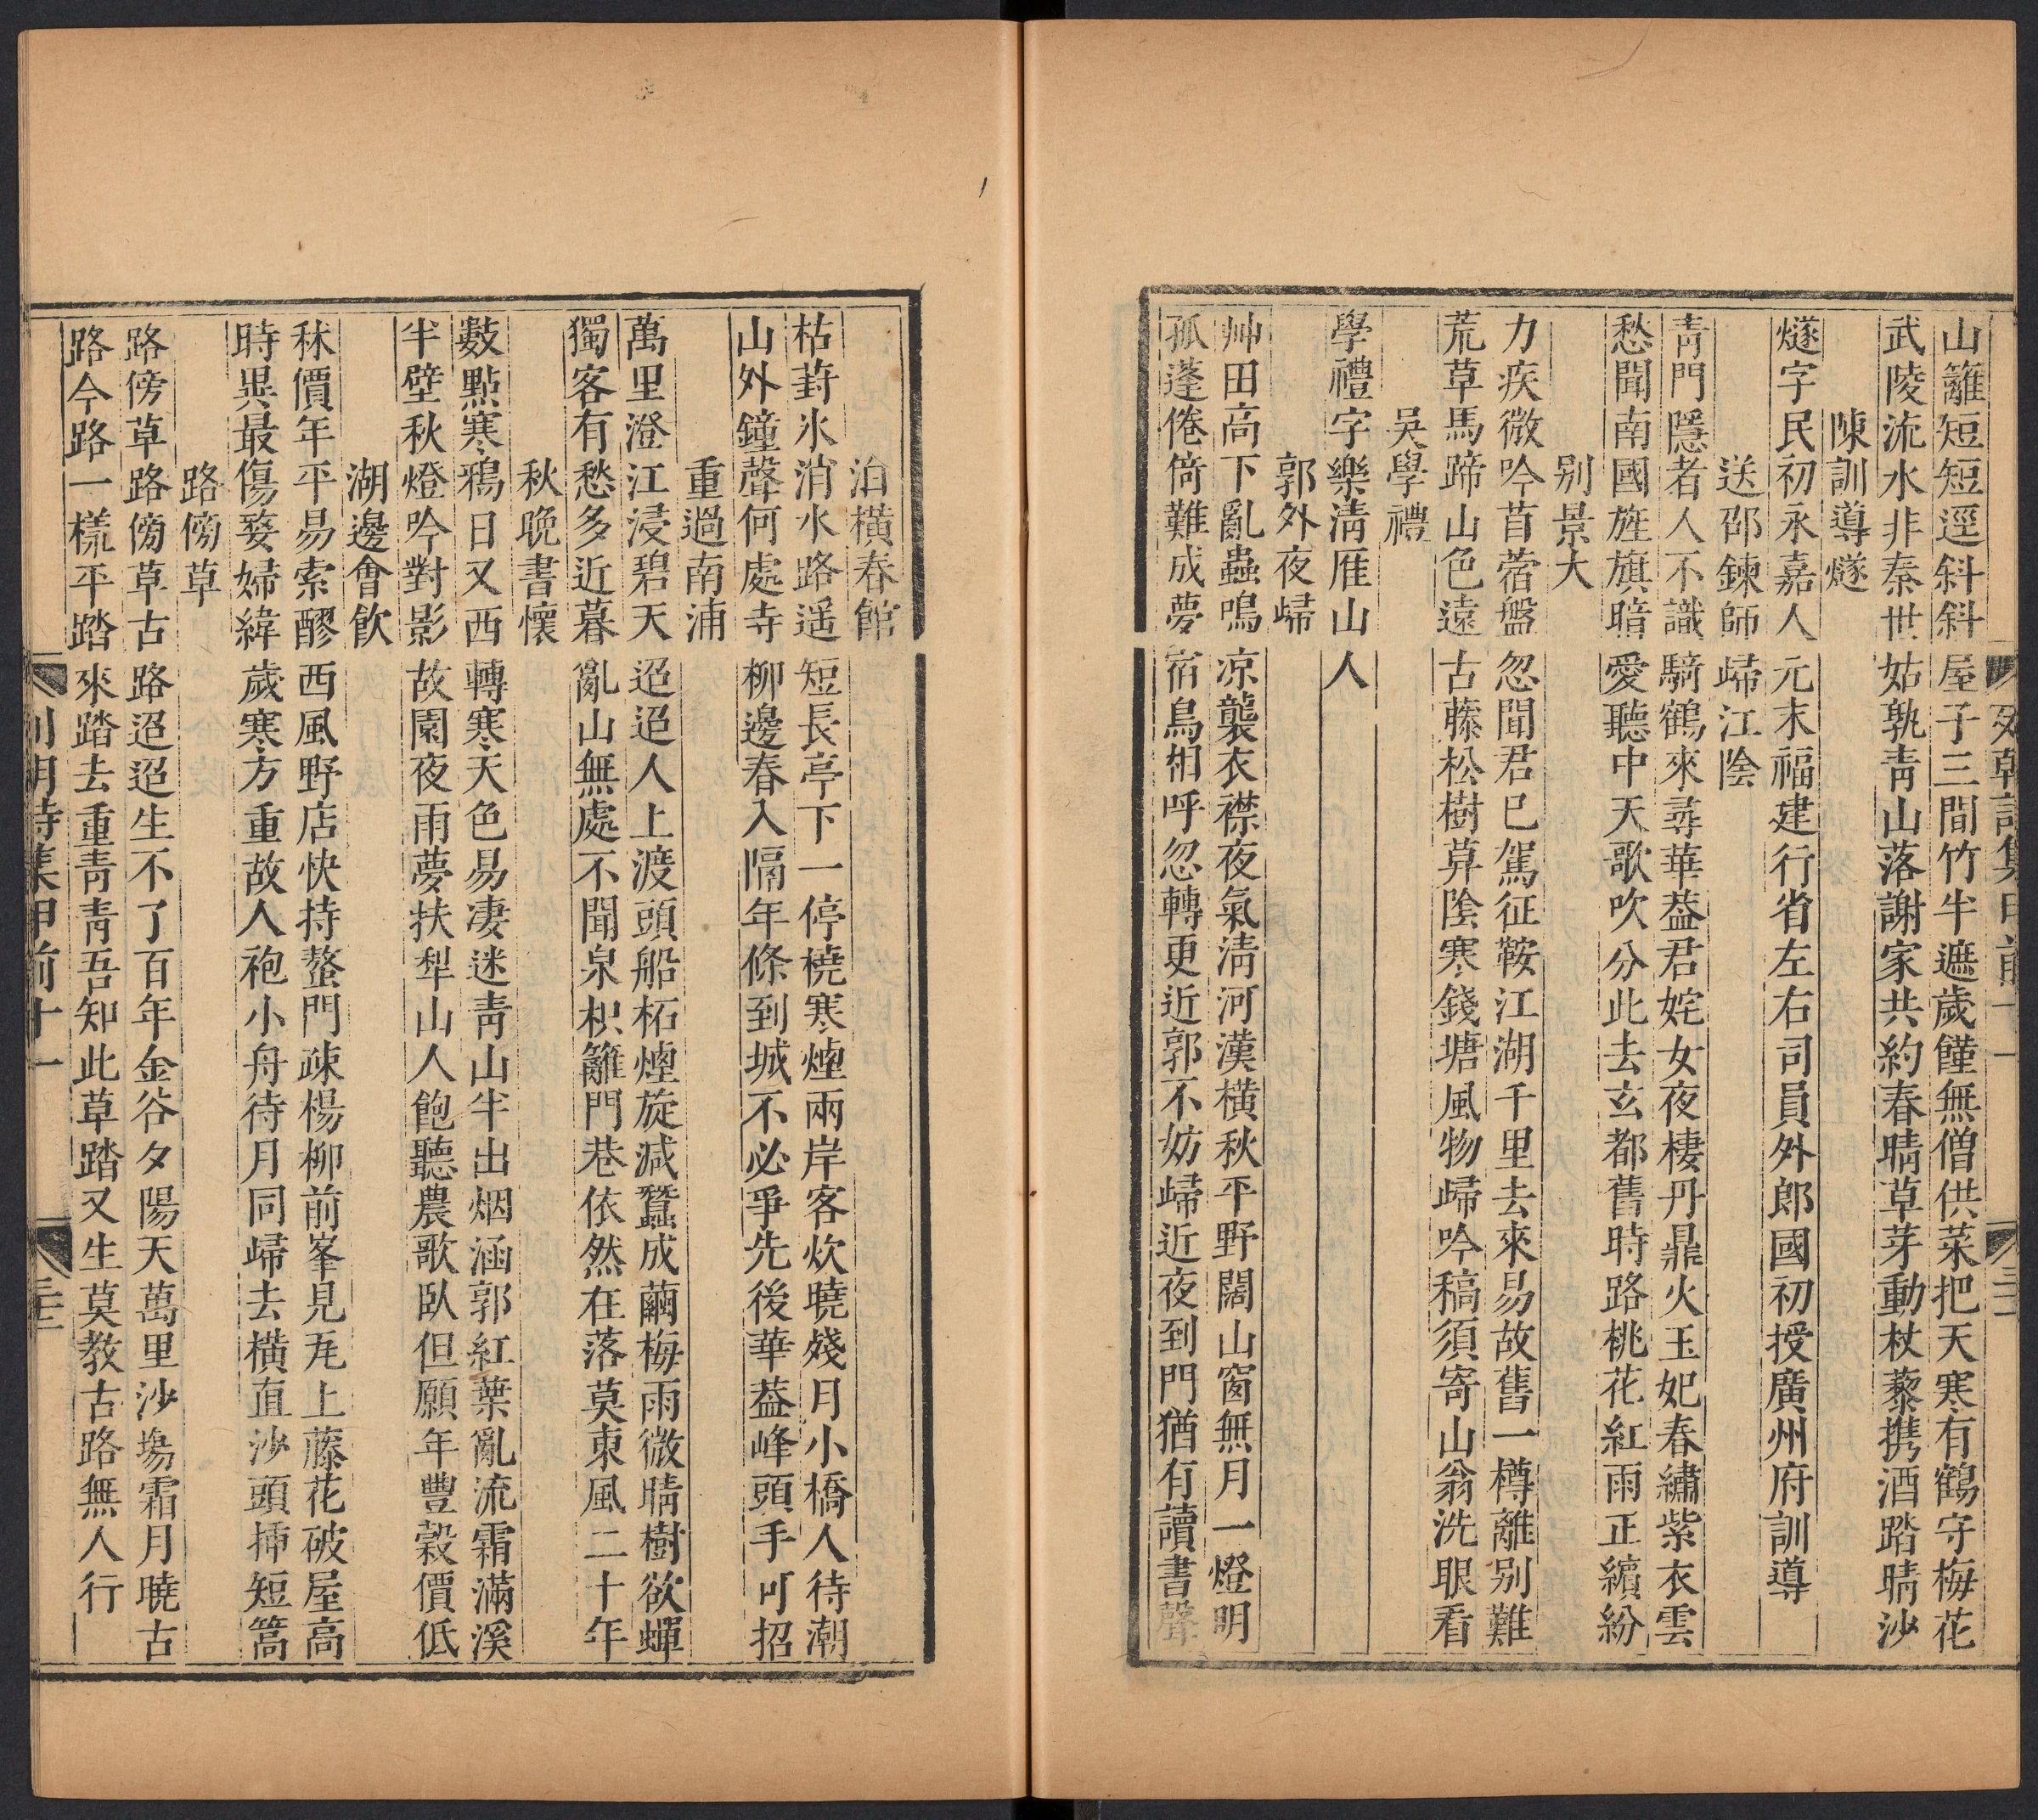 山籬短短逕斜斜屋子三間竹半遮歲饉無僧供菜把天寒有鶴守梅花
武陵流水非秦世姑孰靑山落謝家共約春晴草芽動杖藜携酒踏晴沙
陳訓導燧
燧字民初永嘉人元末福建行省左右司員外郎國初授廣州府訓導
送邵鍊師歸江陰
靑門隱者人不識騎鶴來尋華葢君姹女夜棲丹鼎火玉妃春繡紫衣雲
愁聞南國旌旗暗愛聽中天歌吹分此去玄都舊時路桃花紅雨正繽紛
别景大
力疾微吟苜蓿盤忽聞君已駕征鞍江湖千里去來易故舊一樽離别難
荒草馬蹄山色遠古藤松樹草陰寒錢塘風物歸吟稿須寄山翁洗眼看
吳學禮
學禮字樂淸雁山人
郭外夜歸
艸田高下亂蟲鳴凉襲衣襟夜氣淸河漢橫秋平野闊山窗無月一燈明
孤蓬倦倚難成夢宿鳥相呼忽轉更近郭不妨歸近夜到門猶有讀書聲
泊橫春館
枯葑氷消水路遥短長亭下一停橈寒煙兩岸客炊曉殘月小橋人待潮
山外鐘聲何處寺柳邊春入隔年條到城不必爭先後華葢峰頭手可招
重過南浦
萬里澄江浸碧天迢迢人上渡頭船柘煙旋减蠶成繭梅雨微晴樹欲蟬
獨客有愁多近暮亂山無處不聞泉枳籬門巷依然在落莫東風二十年
秋晚書懷
數點寒鴉日又西轉寒天色易凄迷靑山半出烟涵郭紅葉亂流霜滿溪
半壁秋燈吟對影故園夜雨夢扶犁山人飽聽農歌臥但願年豐穀價低
湖邊會飮
秫價年平易索醪西風野店快持螯門疎楊柳前峯見瓦上藤花破屋高
時異最傷嫠婦緯歲寒方重故人袍小舟待月同歸去橫直沙頭揷短篙
路傍草
路傍草路傍草古路迢迢生不了百年金谷夕陽天萬里沙塲霜月曉古
路今路一樣平踏來踏去重靑靑吾知此草踏又生莫教古路無人行
列朝詩集甲前十一